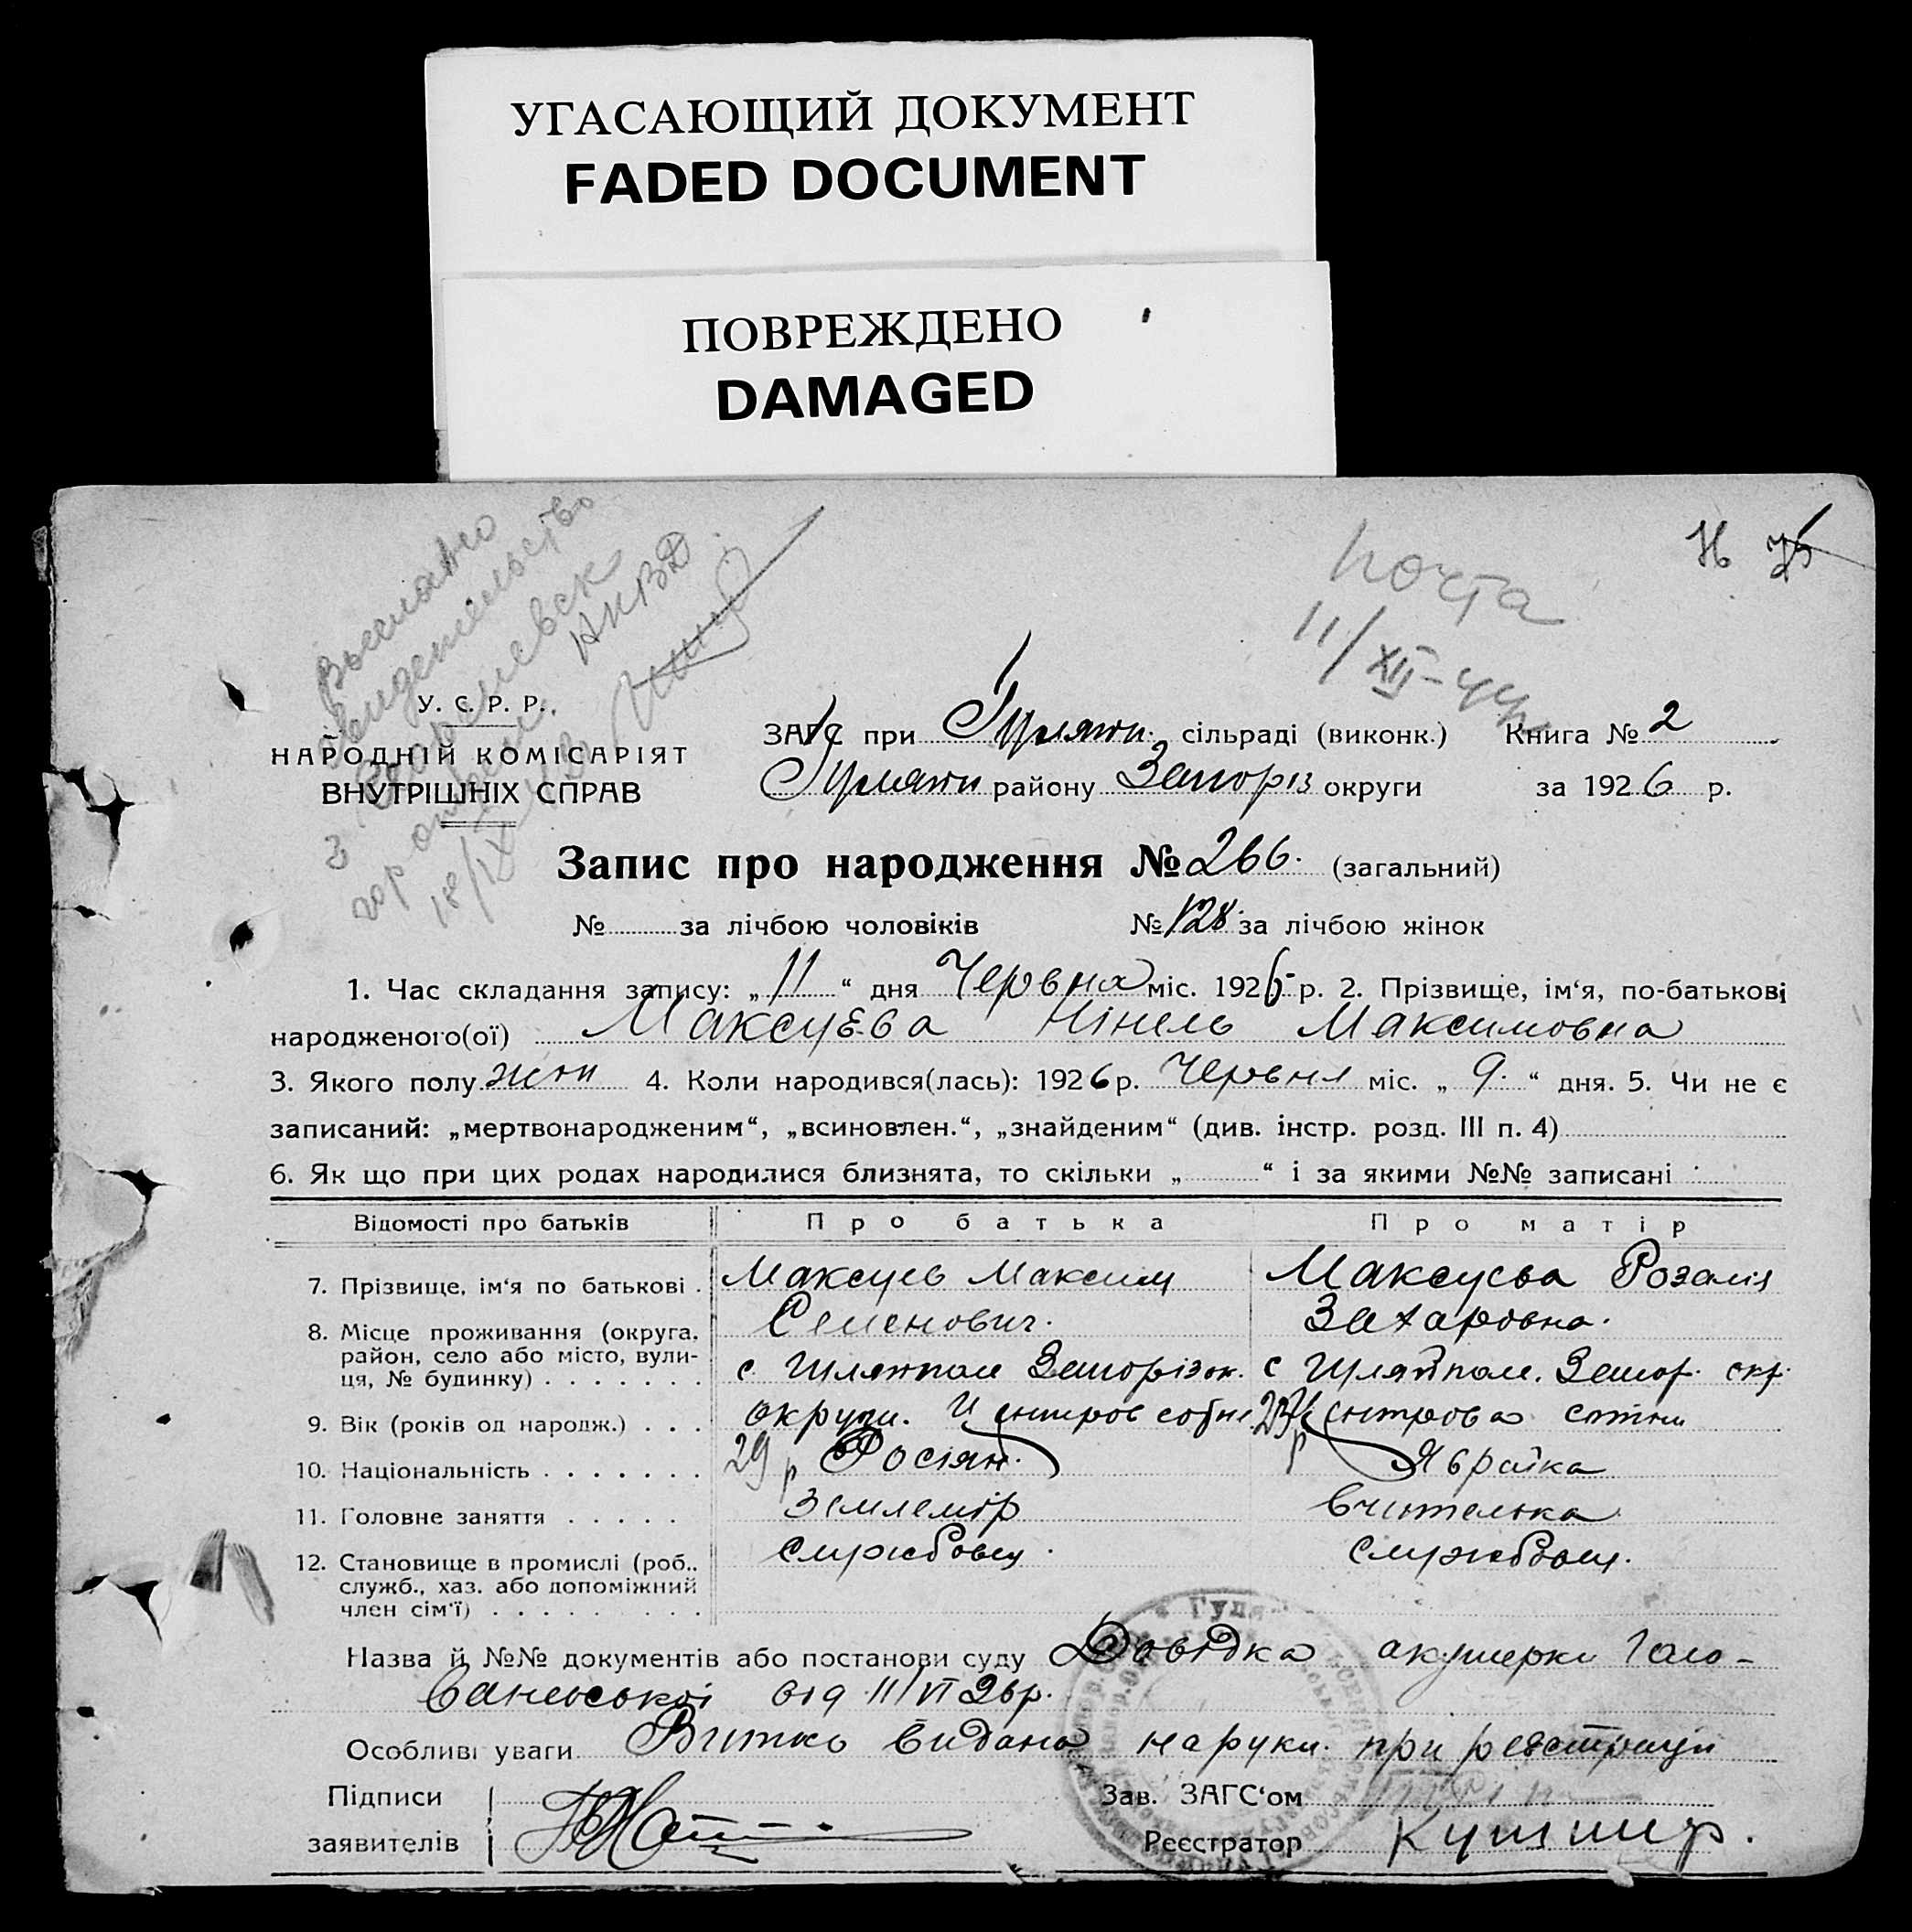 УГАСАЮЩИЙ ДОКУМЕНТ
FADED DOCUMENT
ПОВРЕЖДЕНО
DAMAGED
Выслано
свидетельство
НКВД
гор
18/IX
почта
11/XII-44г
У. С. Р. Р.
НАРОДНІЙ КОМІСАРІЯТ
ВНУТРІШНІХ СПРАВ
ЗАГС при Гуляти. сільраді (виконк.) Книга № 2
Гуляти району Запоріз округи за 1926 р.
Запис про народження № 266. (загальний)
№ за лічбою чоловіків № 128. за лічбою жінок
1. Час складання запису: „ 11 “ дня Червня міс. 1926 р. 2. Прізвище, ім‘я, по-батькові
народженого(ої) Максуєва Нінель Максимовна
3. Якого полу жін 4. Коли народився(лась): 1926 р. Червня міс. „ 9. “ дня. 5. Чи не є
записаний: „мертвонародженим“, „всиновлен.“, „знайденим“ (див. інстр. розд. III п. 4)
6. Як що при цих родах народилися близнята, то скільки „ “ і за якими №№ записані
Відомості про батьків Про батька Про матір
7. Прізвище, ім‘я по батькові . Максуєв Максим Максуєва Розалія
Семенович. Захаровна.
8. Місце проживання (округа,
район, село або місто, вули-
ця, № будинку) . . . . . . . с. Гуляйполе Запорізьк. с Гуляйполе. Запор. окр.
9. Вік (років од народж.) . . . округи. Центров 23 Центрова
10. Національність . . . . . . . 29 р Росіян. р Яврейка
11. Головне заняття . . . . . Землемір Вчителька
12. Становище в промислі (роб.. службовец. службовец.
служб., хаз. або допоміжний
член сім‘ї) . . . . . . . . .
Назва й №№ документів або постанови суду Довідка акушерки Голо-
ванської від 11/VI 26р.
Особливі уваги Витяг видано на руки. при реєстрації
Підписи Зав. ЗАГС‘ом
заявителів Реєстратор Кушнир.